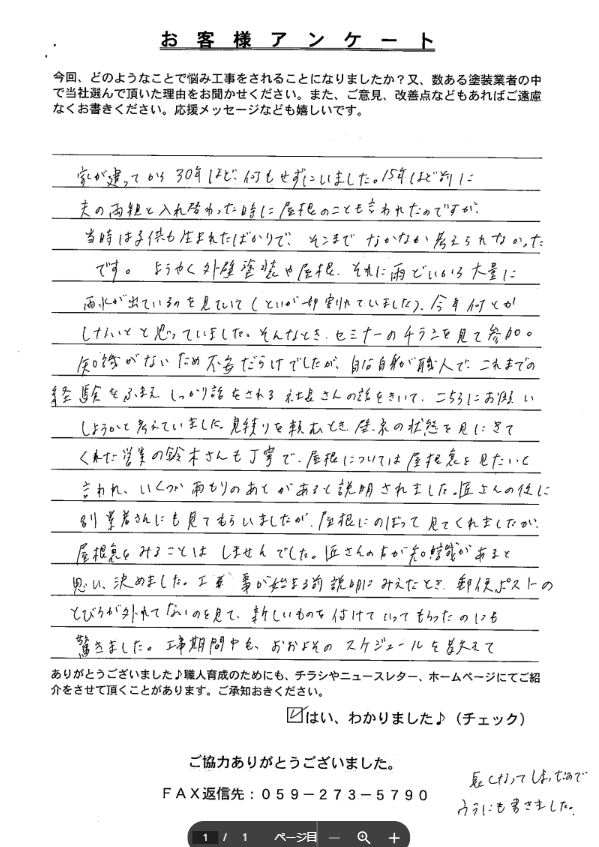 お客様アンケート
今回、どのようなことで悩み工事をされることになりましたか？又、数ある塗装業者の中
で当社選んで頂いた理由をお聞かせください。また、ご意見、改善点などもあればご遠慮
なくお書きください。応援メッセージなども嬉しいです。
家が建ってから30年ほど、何もせずにいました。15年ほど前に
夫の両親と入れ替わった時に屋根のことも言われたのですが、
当時は子供も生まれたばかりで、そこまでなかなか考えられなかった
です。ようやく外壁塗装や屋根、それに雨どいから大量に
雨水が出ているのを見ていて(といが一部割れていました)、今年何とか
しないとと思っていました。そんなとき、セミナーのチラシを見て参加。
知識がないため不安だらけでしたが、自分自身が職人で、これまでの
経験をふまえ しっかり話をされる 社長さんの話をきいて、こちらにお願い
しようかと考えていました。見積りを頼むとき、屋根の状態を見にきて
くれた営業の鈴木さんも丁寧で、屋根については屋根裏を見たいと
言われ、いくつか雨もりのあとがあると説明されました。匠さんの後に
別業者さんにも見てもらいましたが、屋根にのぼって見てくれましたが、
屋根裏をみることはしませんでした。匠さんの方が知識があると
思い、決めました。工事が始まる前説明にみえたとき、郵便ポストの
とびらが外れてないのを見て、新しいものを付けていってもらったのにも
驚きました。工事期間中も、おおよそのスケジュールを教えて
ありがとうございました♪職人育成のためにも、チラシやニュースレター、ホームページにてご紹
介をさせて頂くことがあります。ご承知おきください。
☑はい、わかりました♪（チェック）
ご協力ありがとうございました。
FAX返信先：059-273-5790
長くなってしまったので
うらにも書きました。
1 / 1 ページ目 － ＋